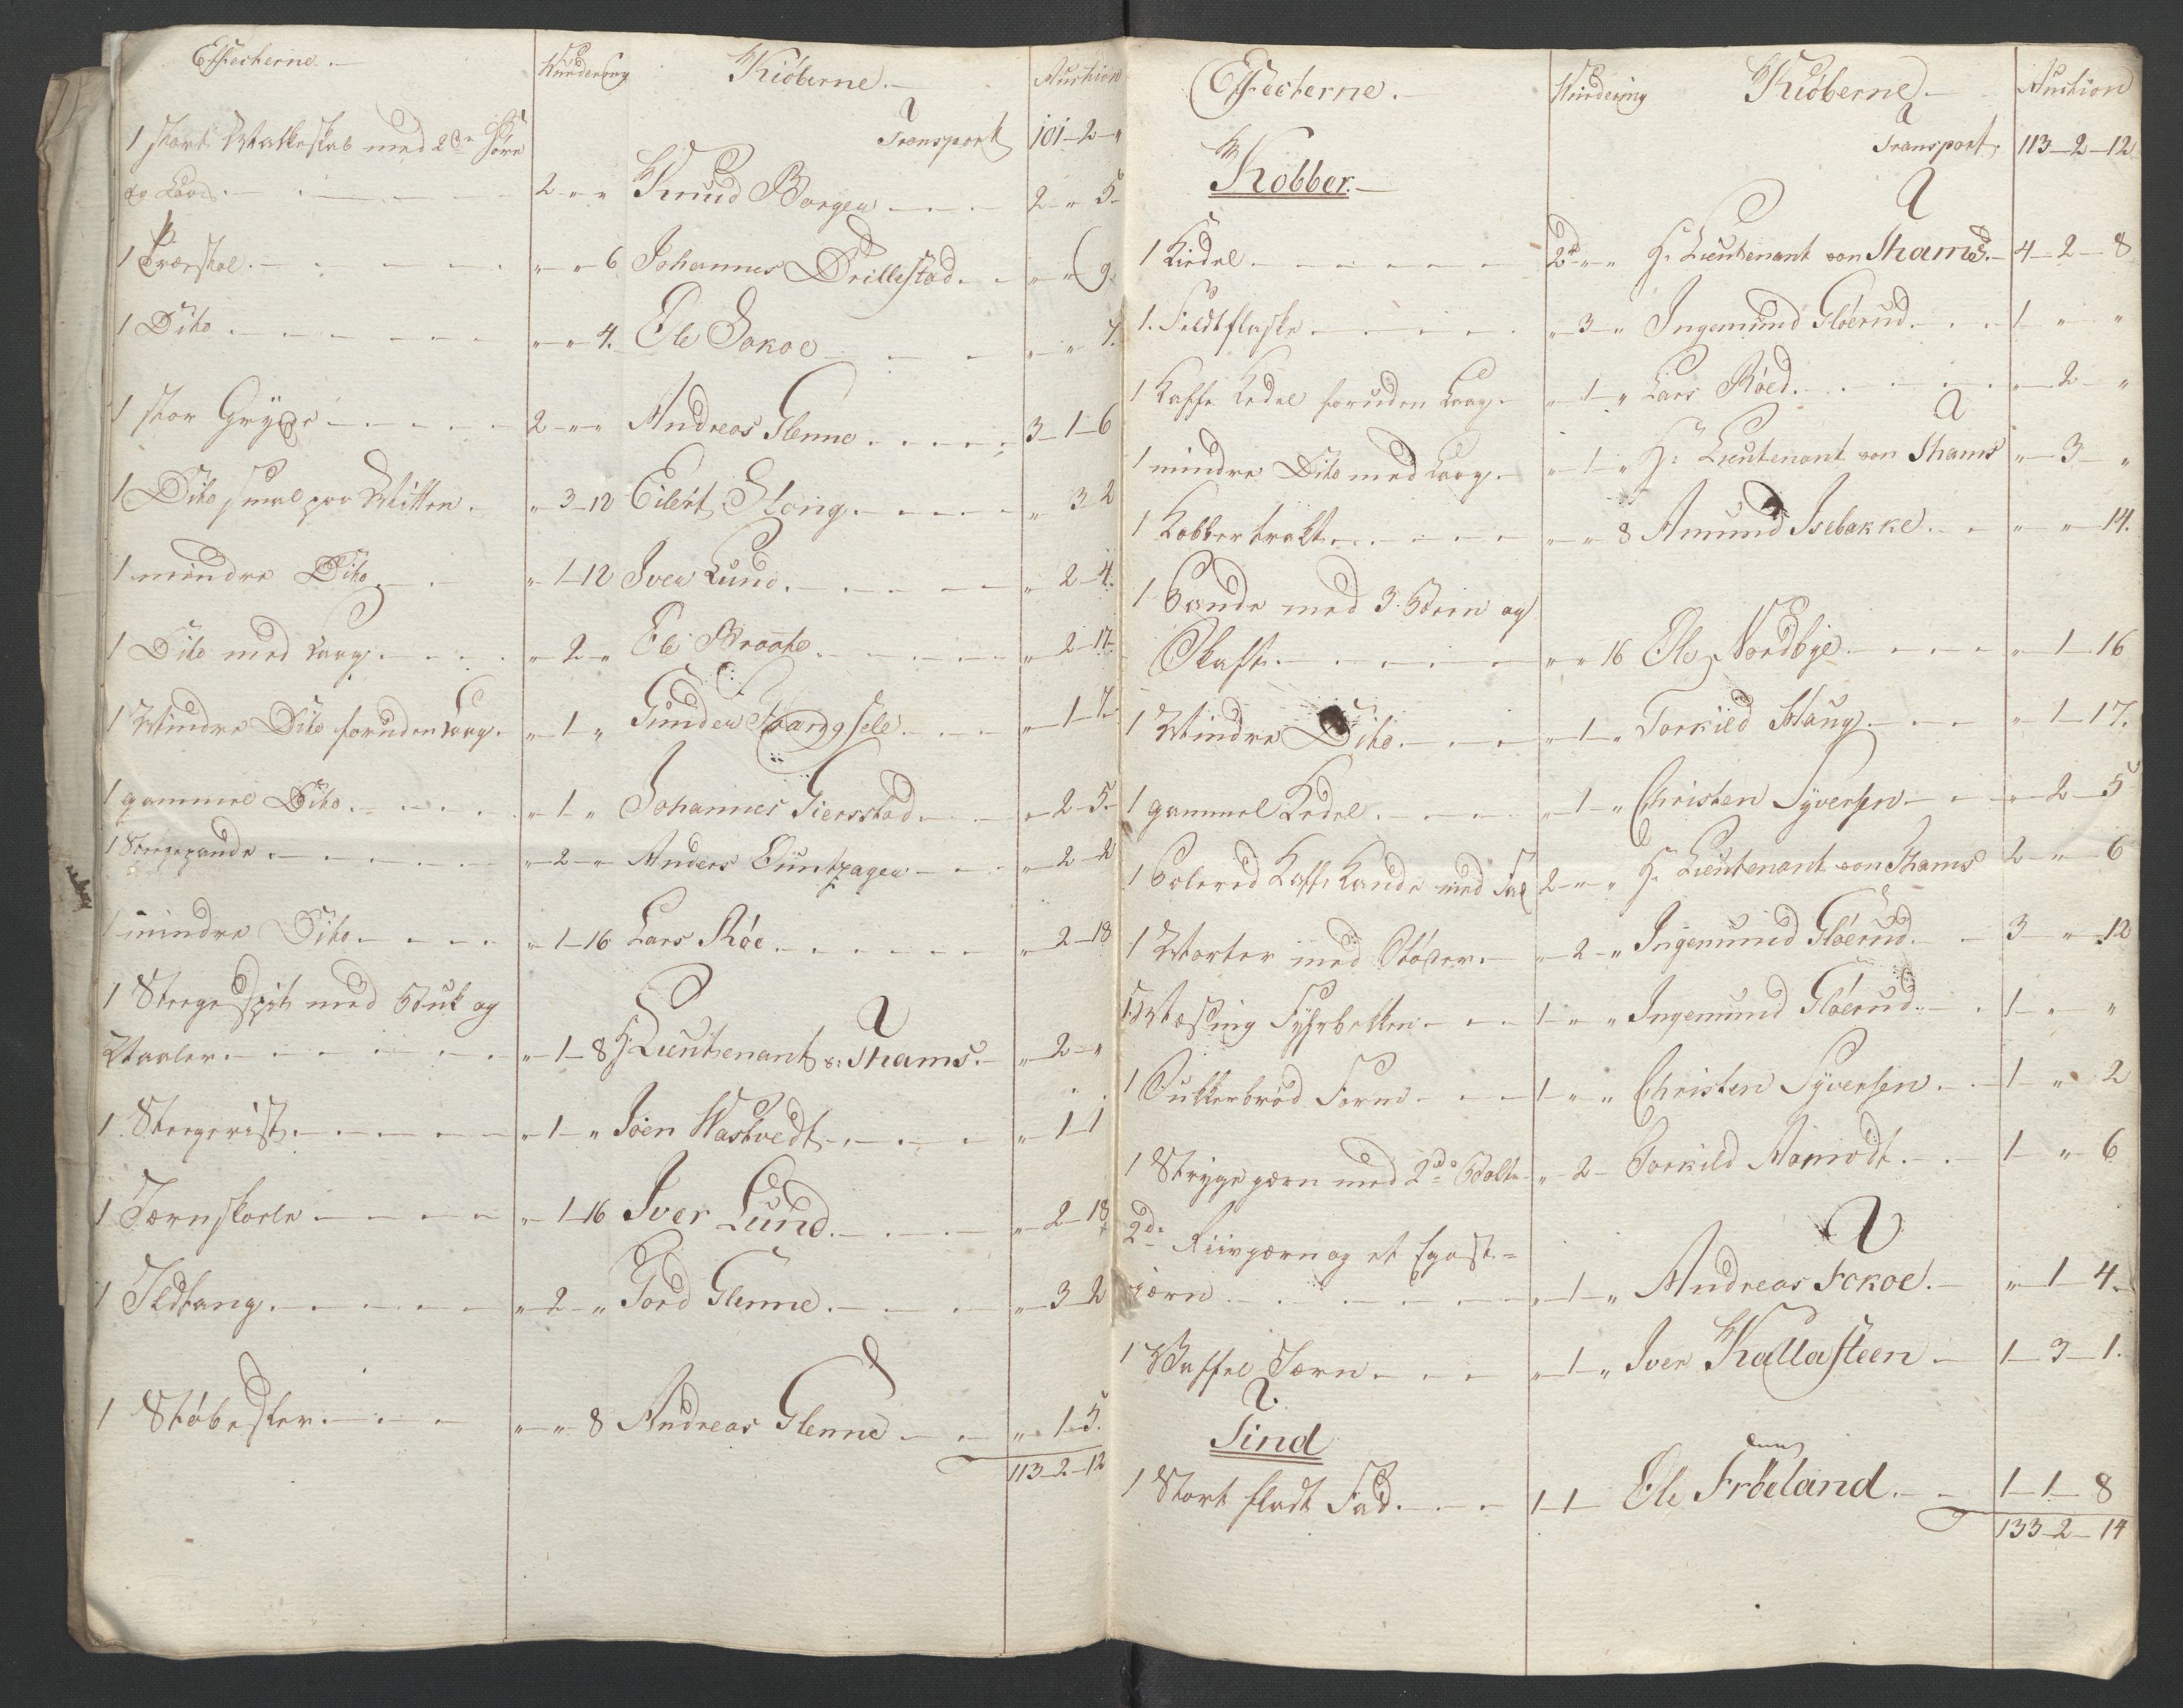 Effecterne. Vurdering Kiöberne. Auction
Transport 101-2-"
1 stort Matskab med 2de Döre
og Laas. 2-"-" Knud Borgen 2-"-5
1 Træestol. "-"-6 Johannes Drillestad. "-"-9.
1 Dito "-"-4. Ole Sokoe "-"-7.
1 stor Gryde 2-"-" Andreas Glenne 3-1-6
1 Dito smal paa Mitten. "-3-12 Eilert Slong. "-3-2
1 mindre Dito "-1-12 Iver Lund. "-2-4.
1 Dito med Laag. "-2-" Ole Braate. "-2-17.
1 Mindre Dito foruden Laag. "-1-" Gunder "-1-7
1 gammel Dito. "-1-" Johannes Giersstad "-2-5.
1 Stegepande "-2-" Anders "-2-2
1 mindre Dito. "-1-16 Lars Röe "-2-18
1 Stege Spit med Buk og
"-1-8 Hr Lieutenant v: Thams. "-2-"
1 Stegerist. "-1-" Joen Wastvedt "-1-1
1 Jernskoele "-1-16 Iver Lund. "-2-18
1 Ildtang. "-2-" Tord Glenne. "-3-2
1 Stöbeskee. "-"-8 Andreas Glenne "-1-5.
113-2-12
Effecterne. Vurdering Kiöberne. Auction
Transport. 113-2-12
Kobber.
1 Kiedel 2-"-" Hr Lieutenant von Thams. 4-2-8
1. Feldtflaske "-3-" Ingemund Glöerud. 1-"-"
1 Kaffe Kedel foruden Laag. "-1-" Lars Röed. "-2-"
1 mindre Dito med Laag. "-1-" Hr Lieutenant von Thams "-3-"
1 Kobbertrakt "-"-8 Amund Isebakke. "-"-14.
1 Pande med 3. Been og
Skaft. "-"-16 Ole Nordbye "-1-16
1 Mindre Dito. "-1-" Torkild Houg "-1-17.
1 gammel Kedel. "-1-" Christen Syversen "-2-5
1 Polered Kaffe Kande med Fad 2-"-" Hr Lieutenant von Thams 2-"-6
1 Morter med Stöder. "-2-" Ingemund Glöerud. 3-"-12
1 Messing Fyhrbekken 1-"-" Ingemund Glöerud. 1-"-"
1 Sukkerbröd Form 1-"-" Christen Syversen. 1-"-2
1 Stryge jærn med 2de Bolte "-2- Torkild Aamodt. 1-"-6
2de Riivjærn og et
jærn "-1-" Andreas Fokoe. "-1-4.
1 Vaffel Jærn "-1-" Iver Kallasteen 1-3-1.
Tind
1 Stort fladt Fad. 1-1- Ole Fröeland. 1-1-8
133-2-14